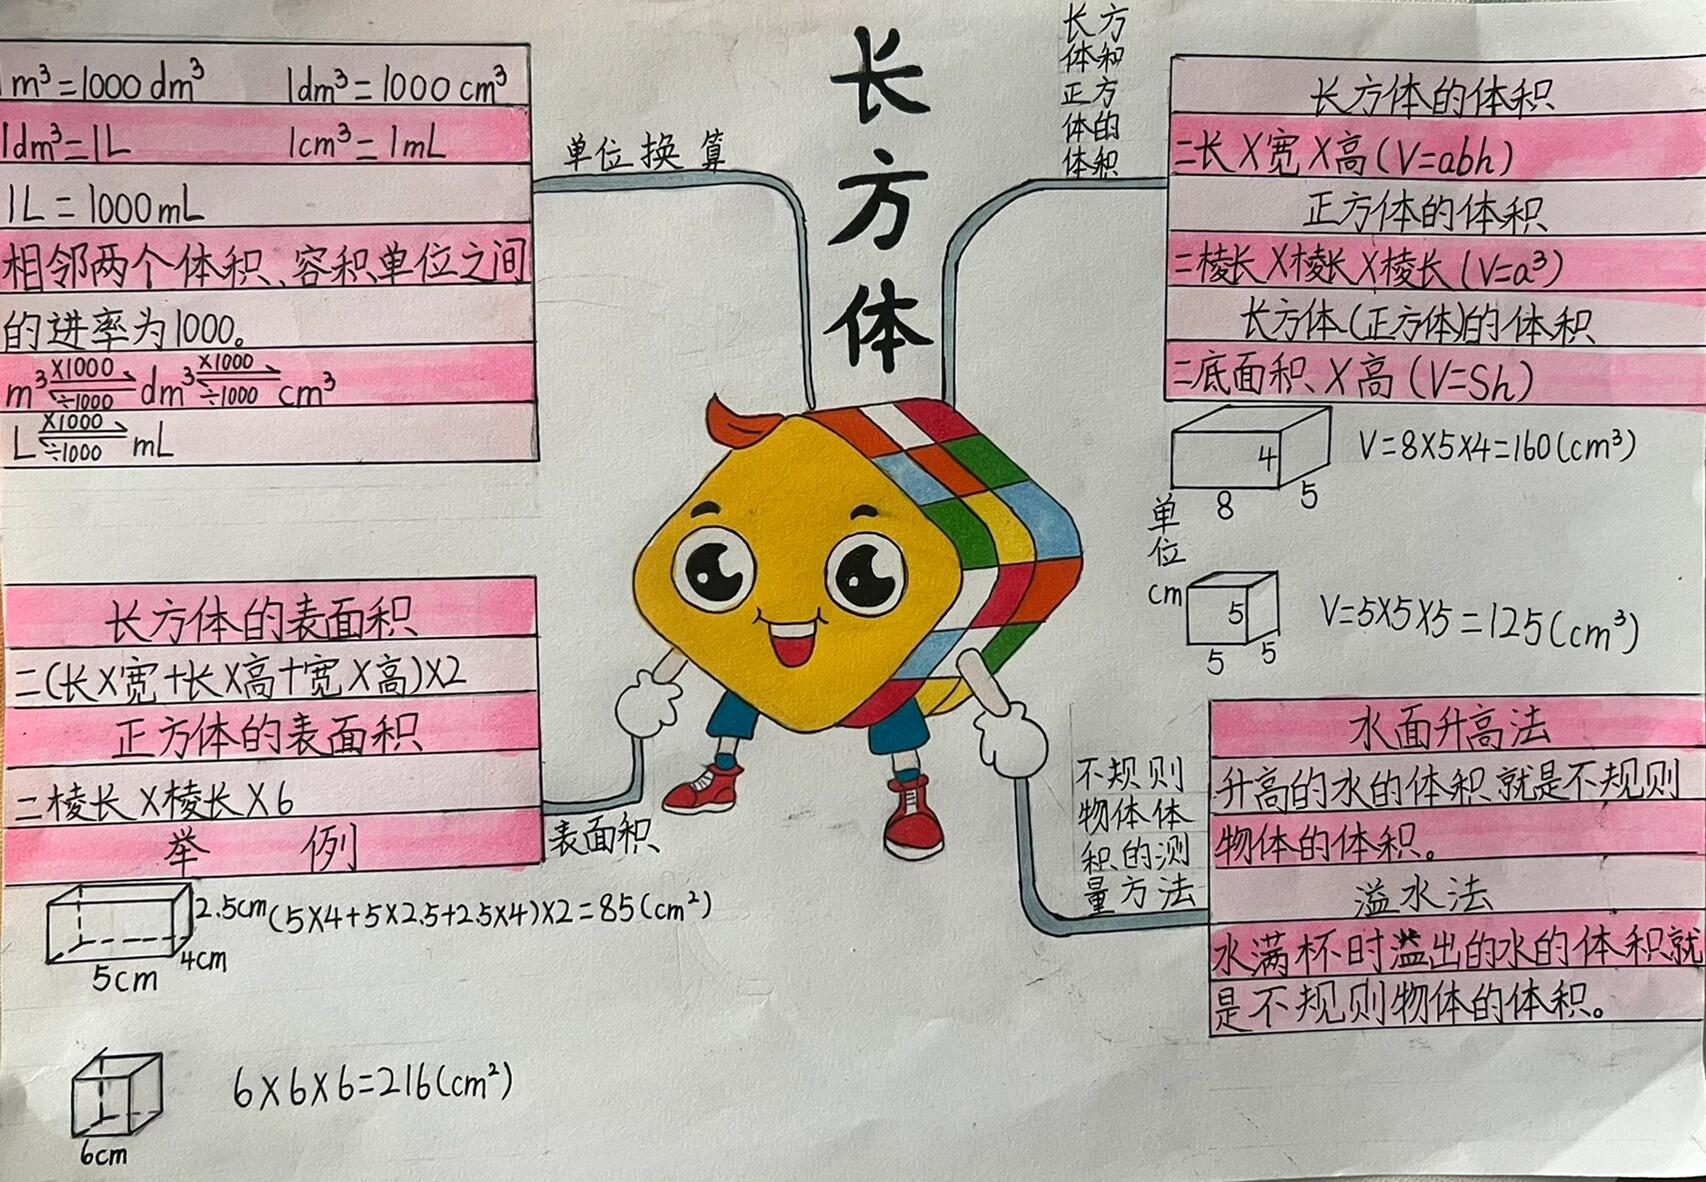 长方体
单位换算
1m³=1000dm³ 1dm³=1000cm³
1dm³=1L 1cm³=1mL
1L=1000mL
相邻两个体积、容积单位之间
的进率为1000。
m³ ×1000 ÷1000 dm³ ×1000 ÷1000 cm³
L ×1000 ÷1000 mL
长方
体和
正方
体的
体积
长方体的体积
=长×宽×高(V=abh)
正方体的体积
=棱长×棱长×棱长(V=a³)
长方体(正方体)的体积
=底面积×高(V=Sh)
4
8
5
V=8×5×4=160(cm³)
单位cm
5
5
5
V=5×5×5=125(cm³)
表面积
长方体的表面积
=(长×宽+长×高+宽×高)×2
正方体的表面积
=棱长×棱长×6
举 例
2.5cm
4cm
5cm
(5×4+5×2.5+2.5×4)×2=85(cm²)
6cm
6×6×6=216(cm²)
不规则
物体体
积的测
量方法
水面升高法
升高的水的体积就是不规则
物体的体积。
溢水法
水满杯时溢出的水的体积就
是不规则物体的体积。